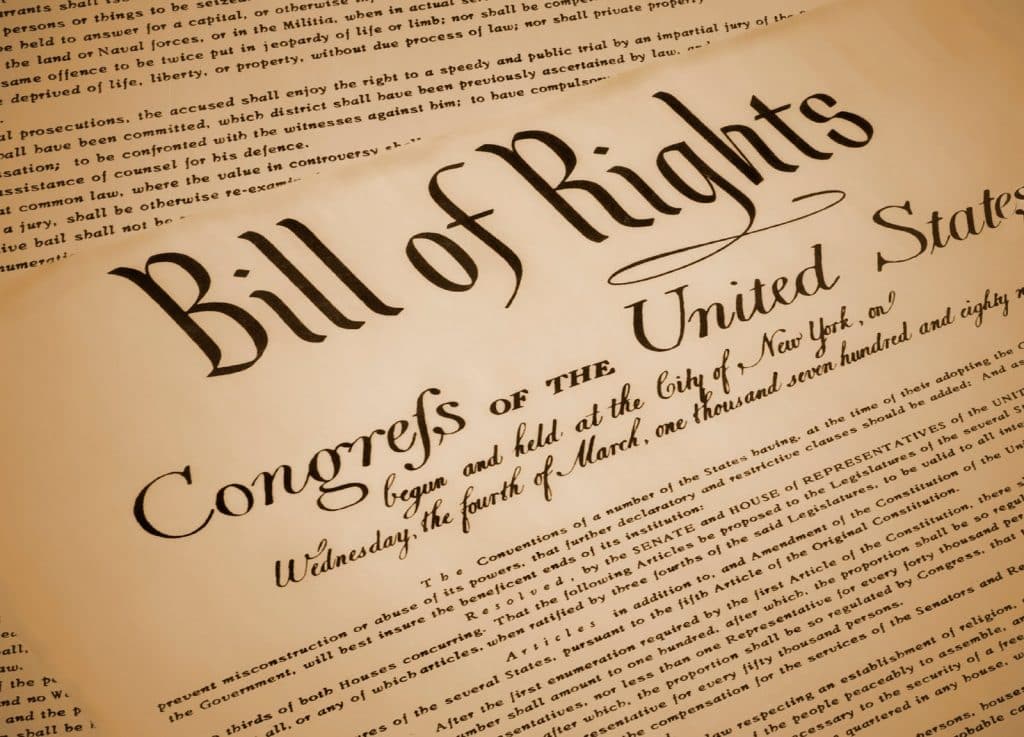 arrants shall
persons or things to be seized
be held to answer for a capital, or otherwise
the land or Naval forces, or in the Militia, when in actual
same offence to be twice put in jeopardy of life or limb; nor shall be
deprived of life, liberty, or property, without due process of law; nor shall private property
al prosecutions, the accused shall enjoy the right to a speedy and public trial by an impartial jury of the
hall have been committed, which district shall have been previously ascertained by law,
sation; to be confronted with the witnesses against him; to have compulsory
assistance of counsel for his defence.
at common law, where the value in controversy
a jury, shall be otherwise re-exam
ive bail shall not be
numerati
Bill of Rights
Congreſs OF THE United States
begun and held at the City of New York, on
Wednesday, the fourth of March, one thousand seven hundred and eighty
The Conventions of a number of the States having, at the time of their adopting the
prevent misconstruction or abuse of its powers, that further declaratory and restrictive clauses should be added: And as
the Government, will best insure the beneficent ends of its institution:
Resolved, by the SENATE and HOUSE of REPRESENTATIVES of the UNIT
thirds of both Houses concurring. That the following Articles be proposed to the Legislatures of the several
all, or any of which articles, when ratified by three fourths of the said Legislatures, to be valid to all
Articles in addition to, and Amendment of the Constitution of the
res of the several States, pursuant to the fifth Article of the Original Constitution.
After the first enumeration required by the first Article of the Constitution, there
mber shall amount to one hundred, after which, the proportion shall be so
sentatives, nor less than one Representative for every forty thousand
after which, the proportion shall be so regulated by Congress, that
resentative for every fifty thousand persons.
the compensation for the services of the Senators and
law respecting an establishment of religion,
of the people peaceably to assemble,
necessary to the security of a free
quartered in any house,
persons, houses
probable
all,
aw.
the
nd no
and the p
shall be